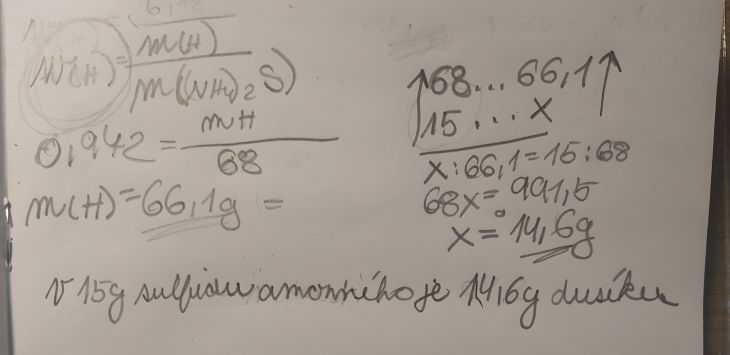 w(H) = m(H) / m((NH4)2S)
0,942 = mH / 68
m(H) = 66,1g =
↑68... 66,1↑
15 ... x
x : 66,1 = 15 : 68
68x = 991,5
x = 14,6g
V 15g sulfidu amonného je 14,6g dusíku